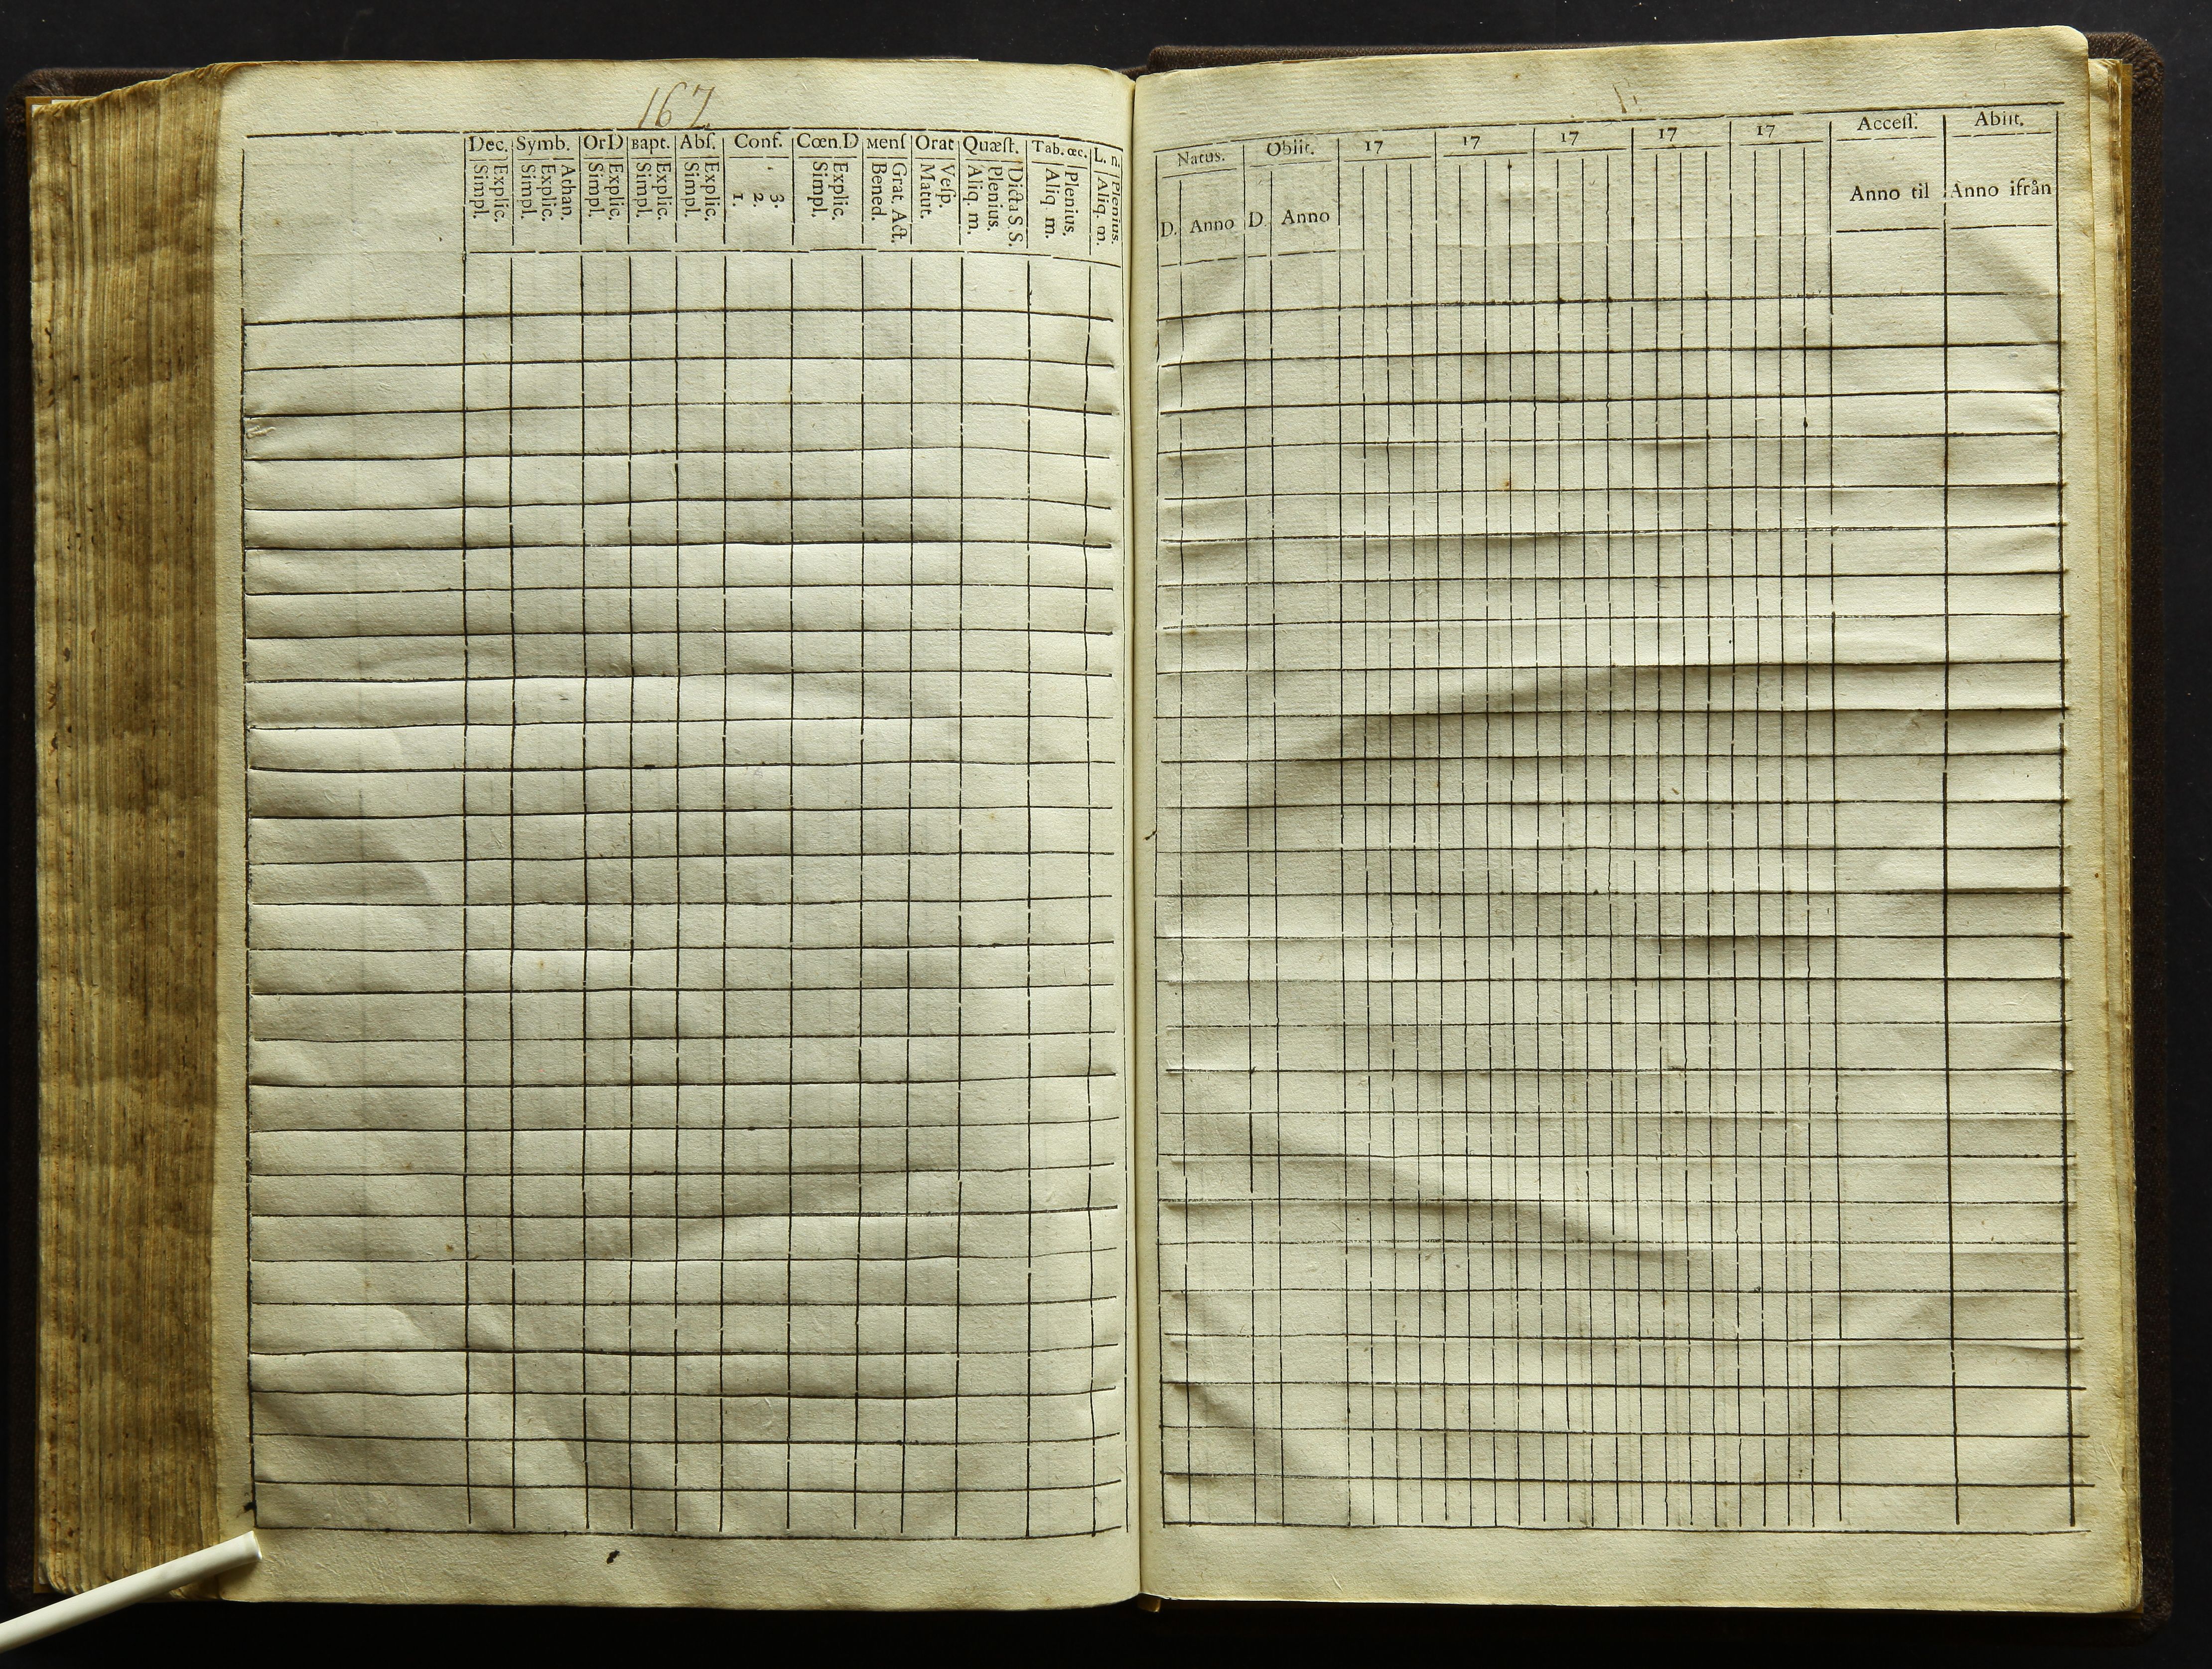 167
Dec. Symb. OrD Bapt. Abſ. Conf. Cœn.D Menſ Orat Quæſt. Tab. œc. L. n.
Explic. Simpl. Athan. Explic. Simpl. Explic. Simpl. Explic. Simpl. Explic. Simpl. 3. 2. 1. Explic. Simpl. Grat. Act. Bened. Veſp. Matut. Dicta S. S. Plenius. Aliq. m. Plenius. Aliq. m. Plenius. Aliq. m.
Natus. Obiit. 17 17 17 17 17 Acceſſ. Abiit.
D. Anno D. Anno Anno til Anno ifrån